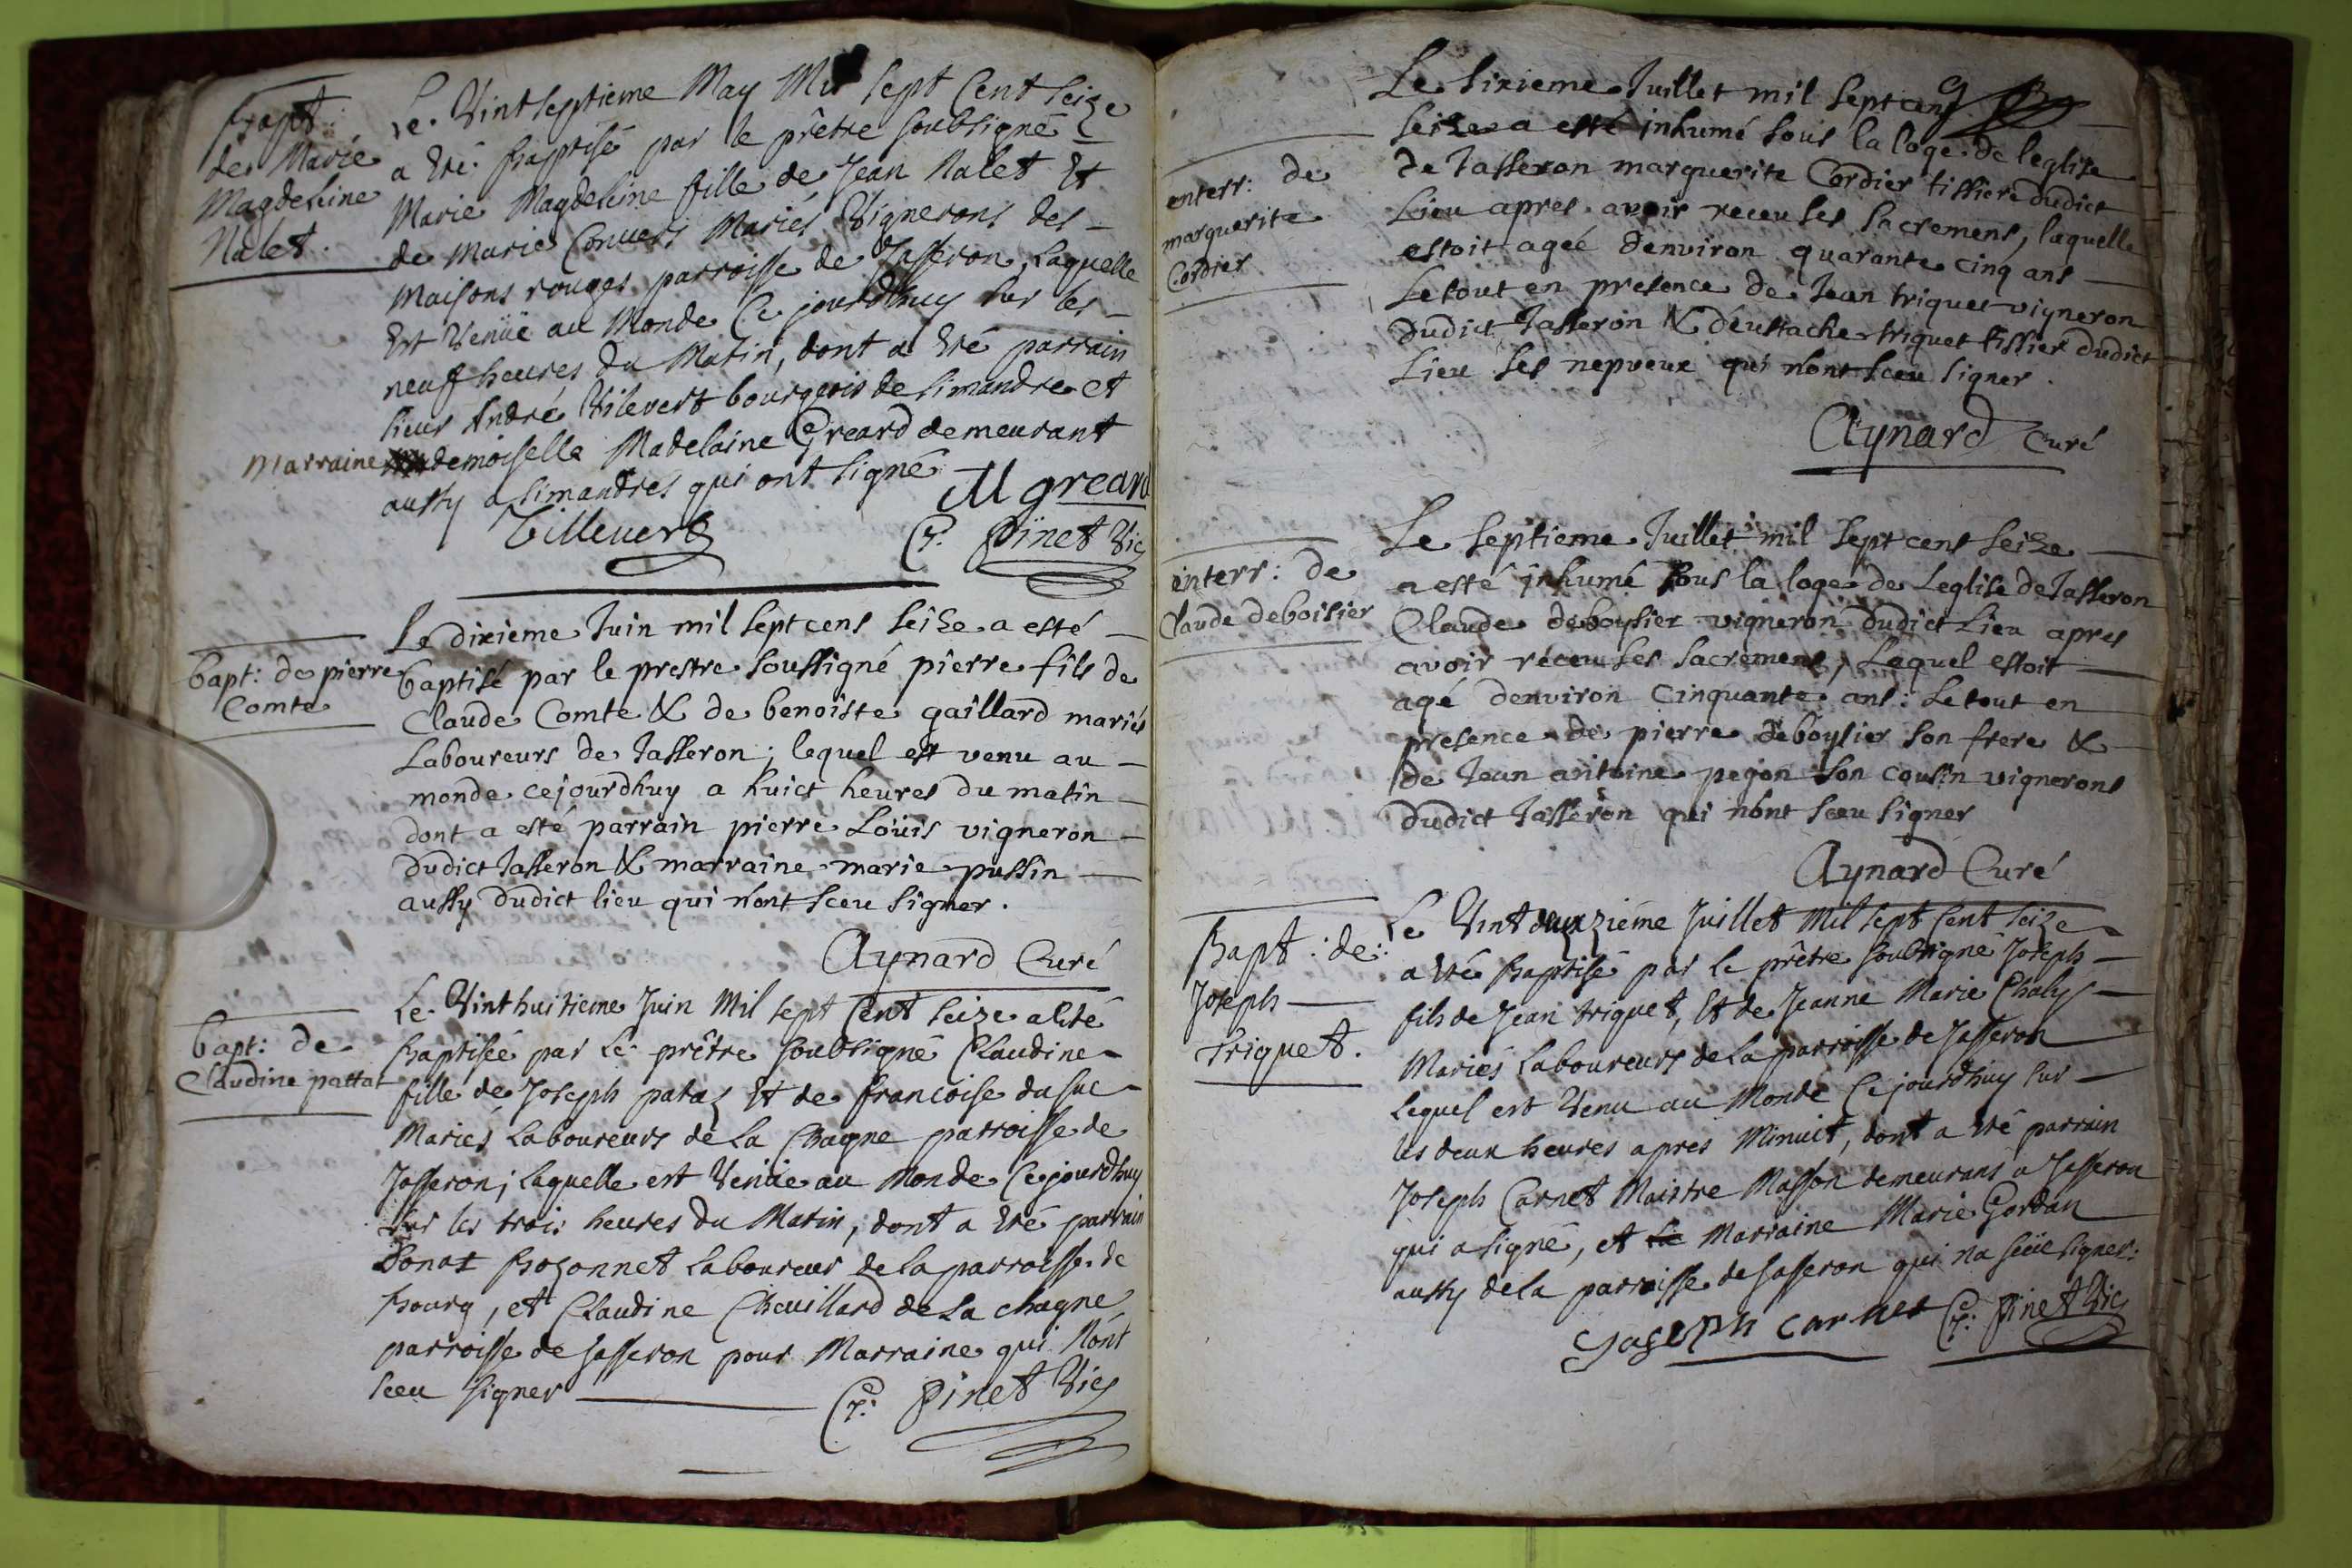 Bapt:
de Marie
Magdeleine
Nalet.
Le Vintseptieme May Mil sept Cent seize
a été Baptisé par le prêtre soubsigné
Marie Magdeleine fille de Jean Nalet Et
de Marie Convers Mariés Vignerons des
Maisons rouges parroisse de Jasseron, Laquelle
Est Venüe au Monde Ce jourdhuy sur les
neuf heures du Matin, dont a été parrain
sieur André Vilevert bourgeois de simandre et
Marraine demoiselle Madelaine Greard demeurant
aussy a simandres qui ont signé
M greard
Villevert
Pinet Vic
bapt: de pierre
Comte
Le dixieme Juin mil sept cens seize a esté
baptisé par le prestre soussigné pierre fils de
Claude Comte & de benoiste gaillard mariés
Laboureurs de Jasseron; lequel est venu au
monde cejourdhuy a huict heures du matin
dont a esté parrain pierre Loüis vigneron
dudict Jasseron & marraine marie pussin
aussy dudict lieu qui nont sceu signer.
Aynard Curé
bapt: de
Claudine pattat
Le Vinthuitieme Juin Mil sept Cent seize a eté
Baptisée par Le prêtre soubsigné Claudine
fille de Joseph pataz Et de francoise du suc
Mariés Laboureurs de La Chagne parroisse de
Jasseron; Laquelle est Venüe au Monde Cejourdhuy
sur les trois heures du Matin, dont a été parrain
Donat Bozonnet Laboureur de La parroisse de
Bourg, et Claudine Chevillard de La chagne
parroisse de Jasseron pour Marraine qui Nont
sceu signer
Pinet Vic
enterr: de
marguerite
Cordier
Le sixieme Juillet mil sept cens
seize a esté inhumé sous la loge de leglise
de Jasseron marguerite Cordier tissiere dudict
Lieu apres avoir receu ses sacremens, laquelle
estoit ageé denviron quarante cinq ans
Le tout en presence de Jean triquet vigneron
dudict Jasseron & déustache triquet tissier dudict
Lieu ses nepveux qui nont sceu signer.
Aynard Curé
enterr: de
Claude deboisier
Le septieme Juillet mil sept cens seize
a esté inhumé sous la loge de Leglise de Jasseron
Claude deboysier vigneron dudict Lieu apres
avoir réceu ses sacremens, Lequel estoit
agé denviron Cinquante ans: Le tout en
presence de pierre deboysier son frere &
de Jean antoine pegon son cousin vignerons
dudict Jasseron qui nont sceu signer
Aynard Curé
Bapt: de:
Joseph
Triquet.
Le Vint deuxzième Juillet Mil sept Cent seize
a été Baptisé par le prêtre soubsigné Joseph
fils de Jean triquet, Et de Jeanne Marie Chaly
Mariés Laboureurs de La parroisse de Jasseron
Lequel est Venu au Monde Cejourdhuy sur
les deux heures apres Minuit, dont a été parrain
Joseph Carnet Maistre Masson demeurans a Jasseron
qui a signé, et La Marraine Marie Gordan
aussy de la parroisse de Jasseron qui na sceü signer:
Joseph carnet Pinet Vic